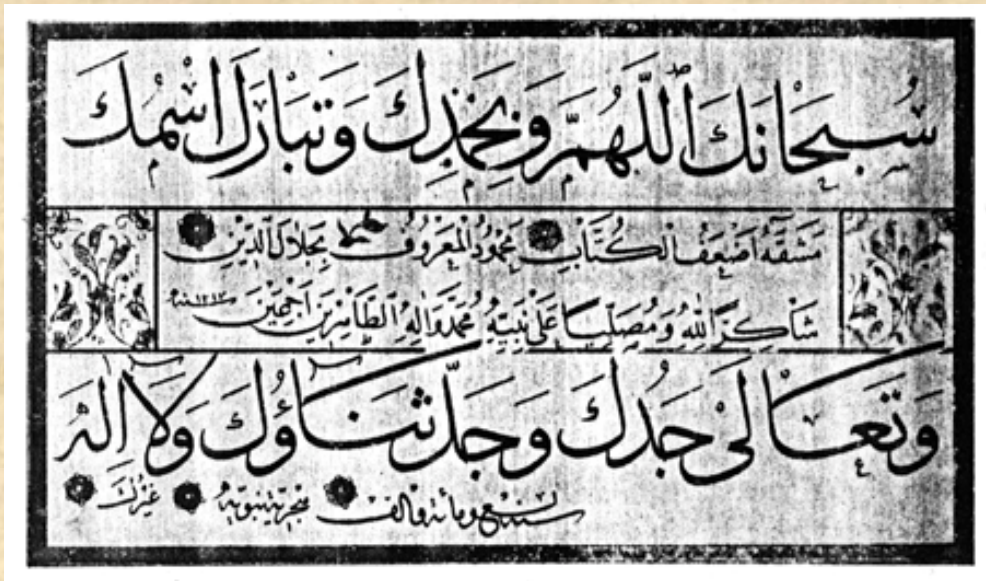 سُبحَانَكَ اللَّهُمَّ وَبِحَمْدِكَ وَتَبَارَكَ اسْمُكَ
مَشَقَهُ اَضْعَفُ الْكُتَّابِ مَحْمُودُ الْمَعْرُوفُ بِجَلَالِ الدِّينِ
شَاكِرًا لِلّٰهِ وَمُصَلِّيًا عَلَى نَبِيِّهِ مُحَمَّدٍ وَاٰلِهِ الطَّاهِرِينَ اَجْمَعِينَ
وَتَعَالَى جَدُّكَ وَجَلَّ ثَنَاؤُكَ وَلَا اِلٰهَ
ومائة والف هجرية نبوية غَيْرُكَ